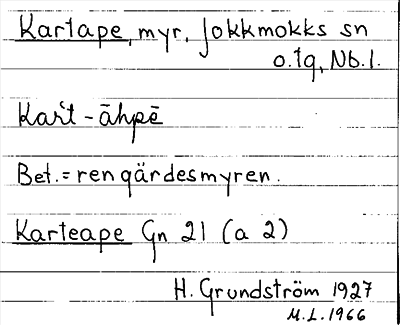 Kartape, myr, Jokkmokks sn
o. tg, Nb. l.
Kar̄t - āhpē
Bet. = rengärdesmyren.
Karteape Gn 21 (a 2)
H. Grundström 1927
M.L. 1966